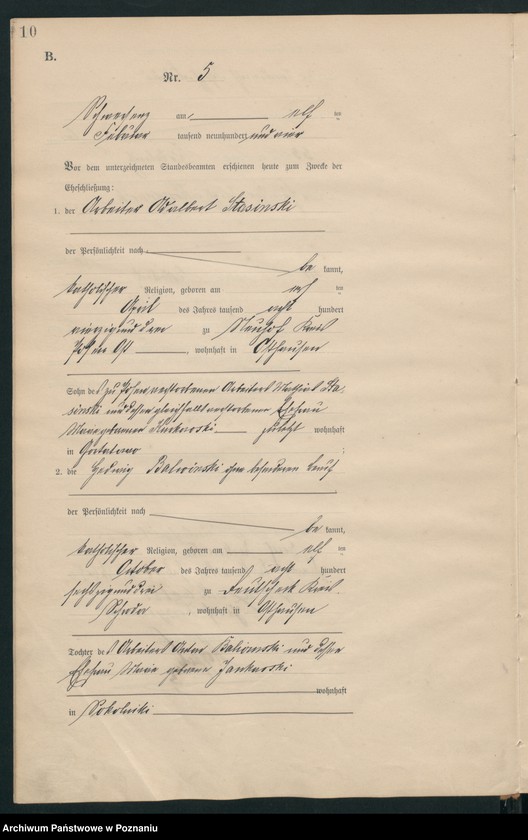 10
B.
Nr. 5
am elf ten
Februar tausend neunhundert und vier
Vor dem unterzeichneten Standesbeamten erschienen heute zum Zwecke der
Eheschließung:
1. der Arbeiter Adalbert Stasinski
der Persönlichkeit nach
be kannt,
katholischer Religion, geboren am ten
April des Jahres tausend acht hundert
zu Neuhof Kreis
Posen Ost, wohnhaft in Osthausen
Sohn des zu Posen verstorbenen Arbeiters Sta-
sinski und dessen gleichfalls verstorbenen Ehefrau
geborenen zuletzt wohnhaft
in Gortatowo ;
2. die Hedwig ohne besonderen Beruf
der Persönlichkeit nach
be kannt,
katholischer Religion, geboren am elf ten
October des Jahres tausend acht hundert
sechzig und drei zu Deutscheck Kreis
Schroda, wohnhaft in Osthausen
Tochter des Arbeiters Anton und dessen
Ehefrau Maria geborene Jankowski
wohnhaft
in Sokolniki
Archiwum Państwowe w Poznaniu